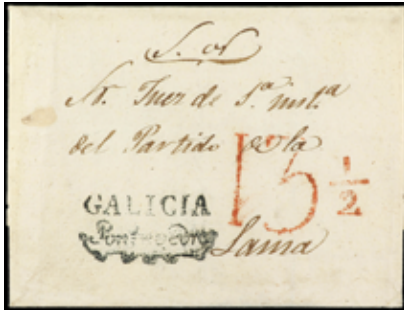 S. N.
Sr. Juez de 1ª. inst.ª
del Partido de la
13 1/2
GALICIA
Pontevedra
Lama